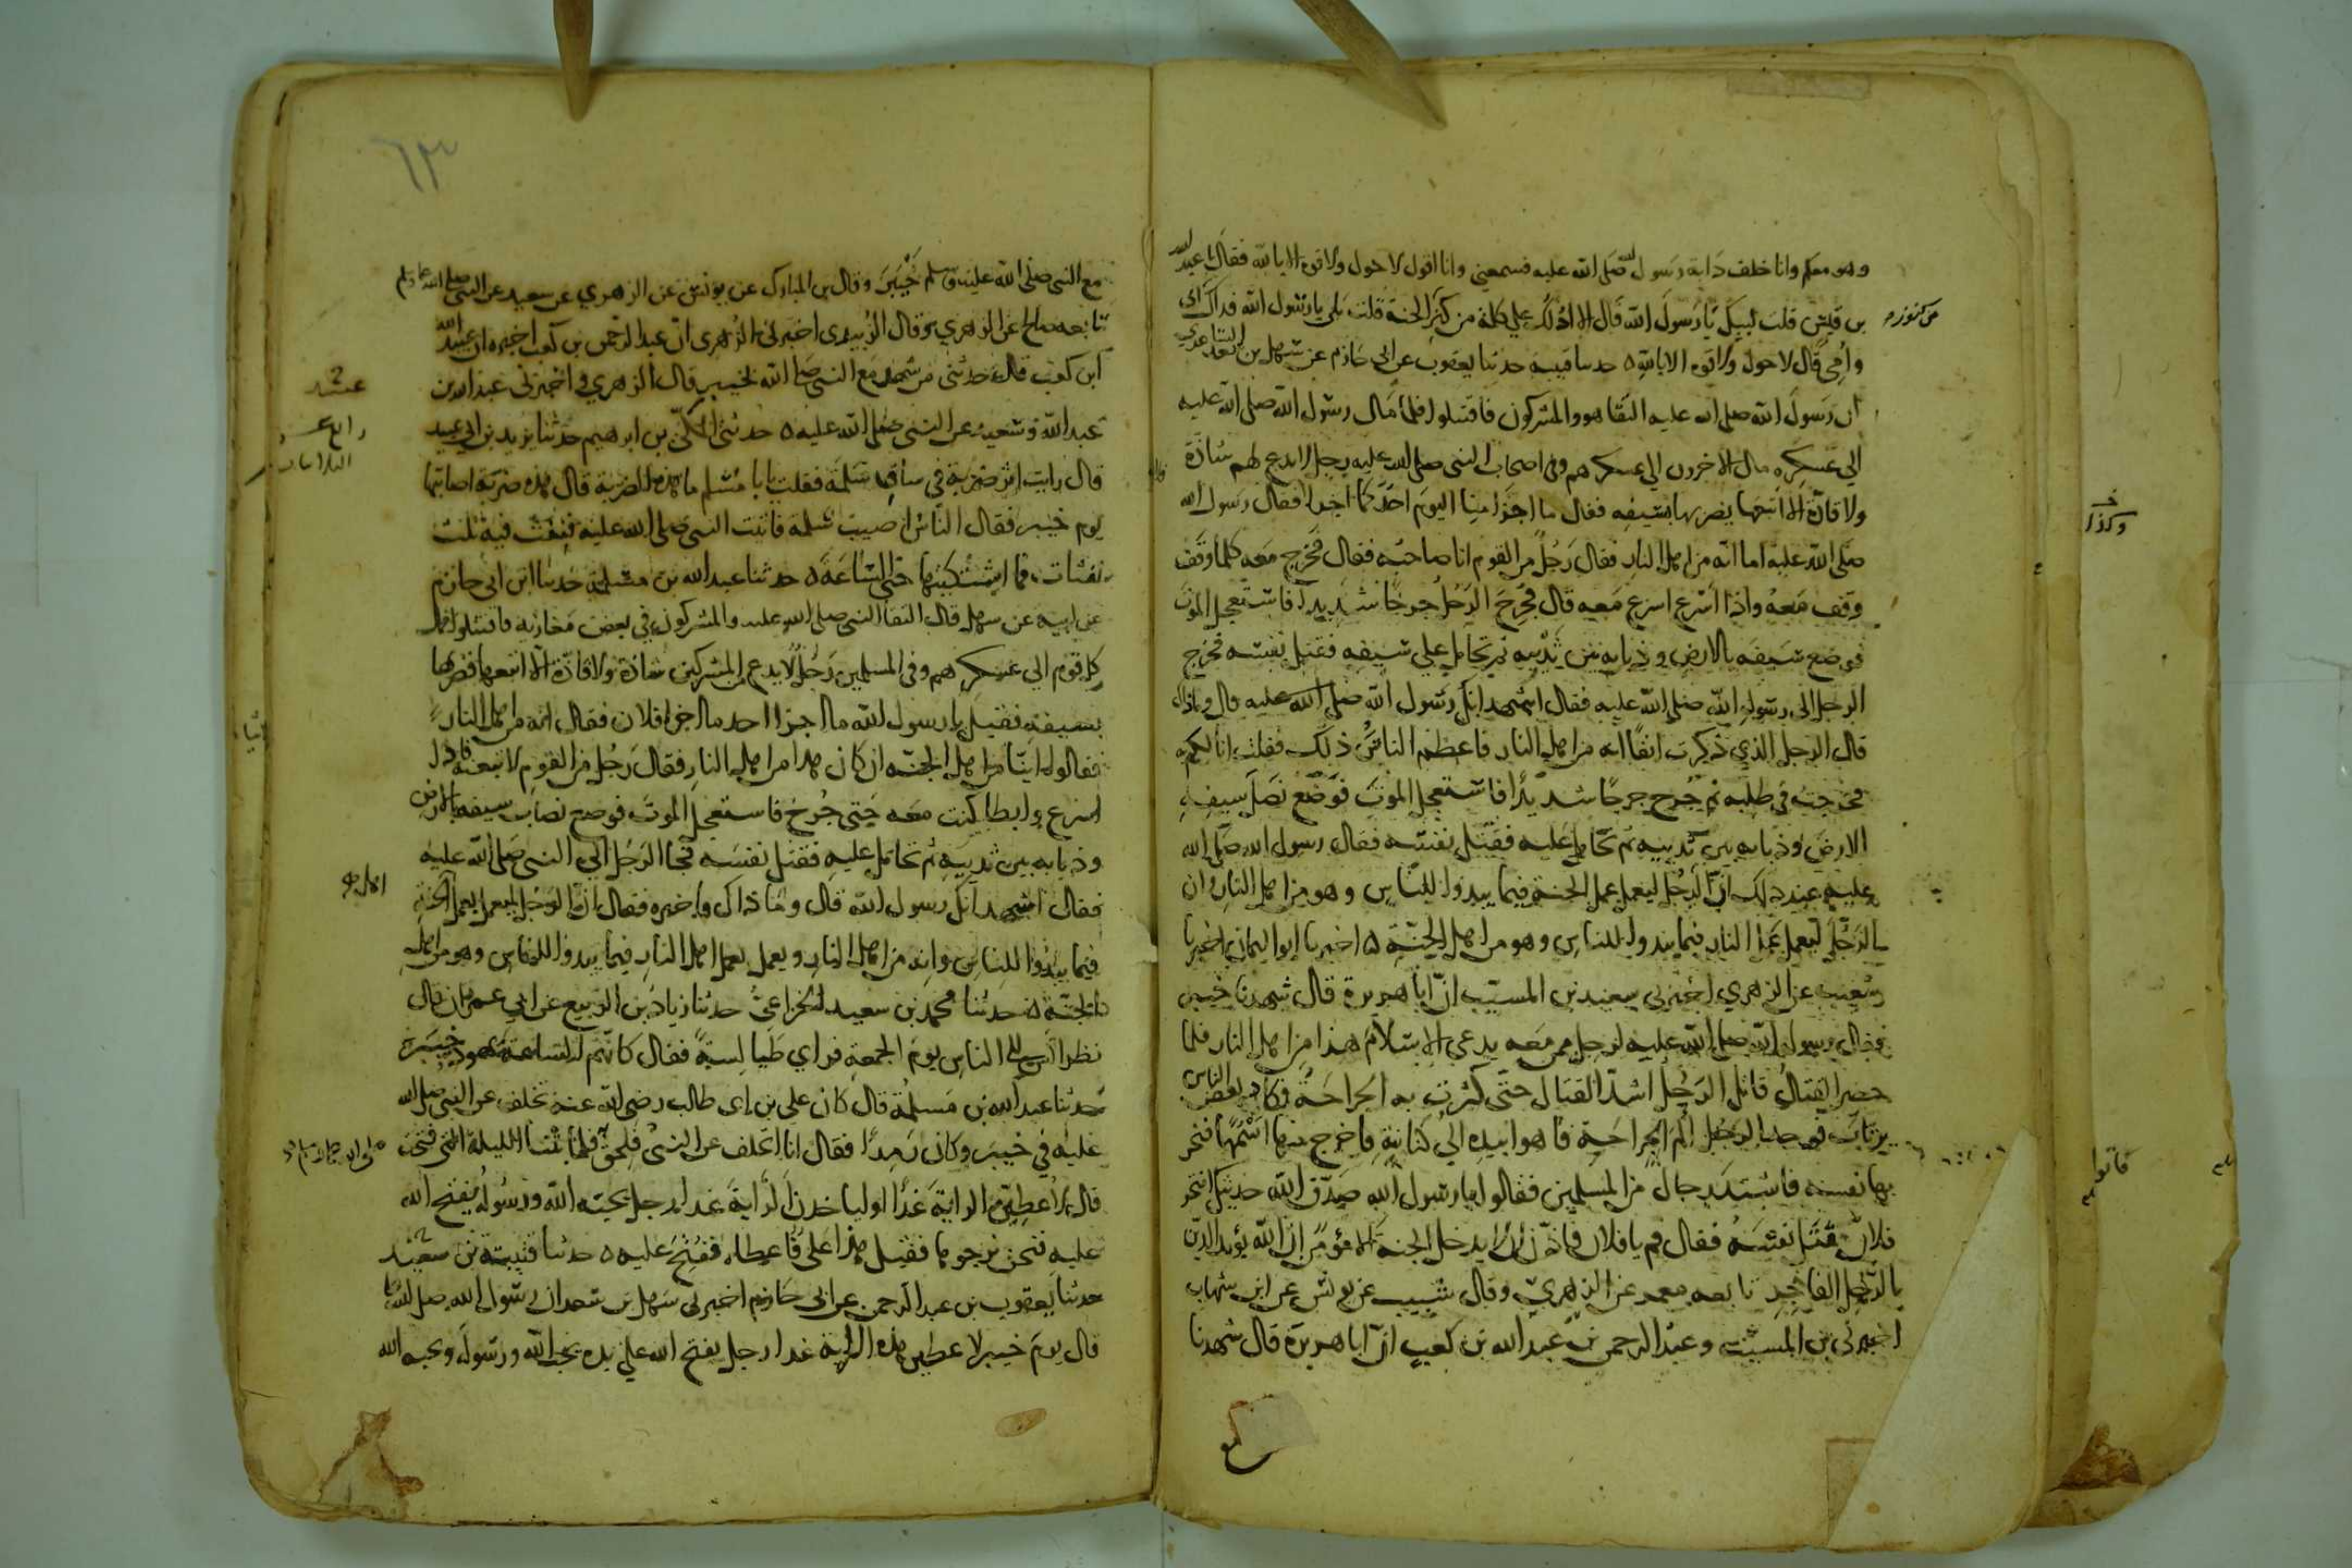 وهو معكم وانا خلف دابة رسول الله صلى الله عليه فسمعني وانا اقول لا حول ولا قوة الا بالله فقال يا عبد الله
بن قيس قلت لبيك يا رسول الله قال الا ادلك علي كلمة من كنز الجنة قلت بلى يا رسول الله فداك ابي
من كنوز
وامي قال لا حول ولا قوة الا بالله ه حدثنا قتيبة حدثنا يعقوب عن ابي حازم عن سهل بن سعد الساعدي
ان رسول الله صلى الله عليه التقا هو والمشركون فاقتتلوا فلما مال رسول الله صلى الله عليه
الي عسكره ومال الاخرون الي عسكرهم وفي اصحاب النبي صلى الله عليه رجل لا يدع لهم شاذة
ولا فاذة الا اتبعها يضربها بسيفه فقال ما اجزا منا اليوم احد كما اجزا فقال رسول الله
صلى الله عليه اما انه من اهل النار فقال رجل من القوم انا صاحبه فقال فخرج معه كلما وقف
وقف معه واذا اسرع اسرع معه قال فجرح الرجل جرحا شديدا فاستعجل الموت
فوضع سيفه بالارض وذبابه بين ثدييه ثم تحامل علي سيفه فقتل نفسه فخرج
الرجل الى رسول الله صلى الله عليه فقال اشهد انك رسول الله صلى الله عليه قال وما ذاك
قال الرجل الذي ذكرت انفا انه من اهل النار فاعظم الناس ذلك فقلت انا لكم به
فخرجت في طلبه ثم جرح جرحا شديدا فاستعجل الموت فوضع نصل سيفه في
الارض وذبابه بين ثدييه ثم تحامل عليه فقتل نفسه فقال رسول الله صلى الله
عليه عند ذلك ان الرجل ليعمل عمل الجنة فيما يبدوا للناس وهو من اهل النار وان
الرجل ليعمل عمل النار فيما يبدوا للناس وهو من اهل الجنة ه اخبرنا ابو اليمان اخبرنا
شعيب عن الزهري اخبرني سعيد بن المسيب ان ابا هريرة قال شهدنا خيبر
فقال رسول الله صلى الله عليه لرجل ممن معه يدعي الاسلام هذا من اهل النار فلما
حضر القتال قاتل الرجل اشد القتال حتى كثرت به الجراحة فكاد بعض الناس
يرتاب فوجد الرجل الم الجراحة فاهوا بيده الي كنانته فاخرج منها اسهما فنحر
بها نفسه فاشتد رجال من المسلمين فقالوا يا رسول الله صدق الله حديثك انتحر
فلان فقتل نفسه فقال قم يا فلان فاذن انه لا يدخل الجنة الا مؤمن ان الله يؤيد الدين
بالرجل الفاجر تابعه معمر عن الزهري وقال شبيب عن يونس عن ابن شهاب
اخبرني بن المسيب وعبد الرحمن بن عبد الله بن كعب ان ابا هريرة قال شهدنا
وكذا
فاتوا
٦٣
مع النبي صلى الله عليه وسلم خيبر وقال بن المبارك عن يونس عن الزهري عن سعيد عن النبي صلى الله عليه وسلم
تابعه صالح عن الزهري وقال الزبيدي اخبرني الزهري ان عبد الرحمن بن كعب اخبره ان عبيد الله
ابن كعب قال حدثني من شهد مع النبي صلى الله بخيبر قال الزهري واخبرني عبد الله بن
عبد الله وسعيد عن النبي صلى الله عليه ه حدثني المكي بن ابرهيم حدثنا يزيد بن ابي عبيد
قال رايت اثر ضربة في ساق سلمة فقلت يا ابا مسلم ما هذه الضربة قال هذه ضربة اصابتها
يوم خيبر فقال الناس اصيب سلمة فاتيت النبي صلى الله عليه فنفث فيه ثلث
نفثات فما اشتكيتها حتى الساعة ه حدثنا عبد الله بن مسلمة حدثنا ابن ابي حازم
عن ابيه عن سهل قال التقا النبي صلى الله عليه والمشركون في بعض مغازيه فاقتتلوا فمال
كل قوم الي عسكرهم وفي المسلمين رجل لا يدع من المشركين شاذة ولا فاذة الا اتبعها فضربها
بسيفه فقيل يا رسول الله ما اجزا احد ما اجزا فلان فقال انه من اهل النار
فقالوا اينا من اهل الجنة ان كان هذا من اهل النار فقال رجل من القوم لاتبعنه فاذا
اسرع وابطا كنت معه حتى جرح فاستعجل الموت فوضع نصاب سيفه بالارض
وذبابه بين ثدييه ثم تحامل عليه فقتل نفسه فجا الرجل الي النبي صلى الله عليه
فقال اشهد انك رسول الله قال وما ذاك فاخبره فقال ان الرجل ليعمل بعمل الجنة
فيما يبدوا للناس وانه من اهل النار ويعمل بعمل اهل النار فيما يبدوا للناس وهو من اهل
الجنة ه حدثنا محمد بن سعيد الخزاعي حدثنا زياد بن الربيع عن ابي عمران قال
نظر انس الى الناس يوم الجمعة فراي طيالسة فقال كانهم الساعة يهود خيبر ه
حدثنا عبد الله بن مسلمة قال كان علي بن ابي طالب رضي الله عنه تخلف عن النبي صلى الله
عليه في خيبر وكان رمدا فقال انا اتخلف عن النبي فلحق فلما بتنا الليلة التي فتحت
قال لاعطين الراية غدا او لياخذن الراية غدا رجل يحبه الله ورسوله يفتح الله
عليه فنحن نرجوها فقيل هذا علي فاعطاه ففتح عليه ه حدثنا قتيبة بن سعيد
حدثنا يعقوب بن عبد الرحمن عن ابي حازم اخبرني سهل بن سعد ان رسول الله صلى الله
قال يوم خيبر لاعطين هذه الراية غدا رجل يفتح الله علي يديه يحب الله ورسوله ويحبه الله